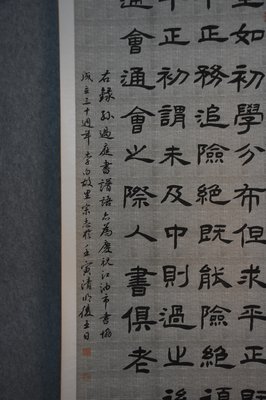 至如初學分布但求平正
平正務追險絕既能險絕復
平正初謂未及中則過之後
通會通會之際人書俱老
右錄孫過庭書譜語以為慶祝江油市書協
成立三十週年李白故里宗志於壬寅清明後五日